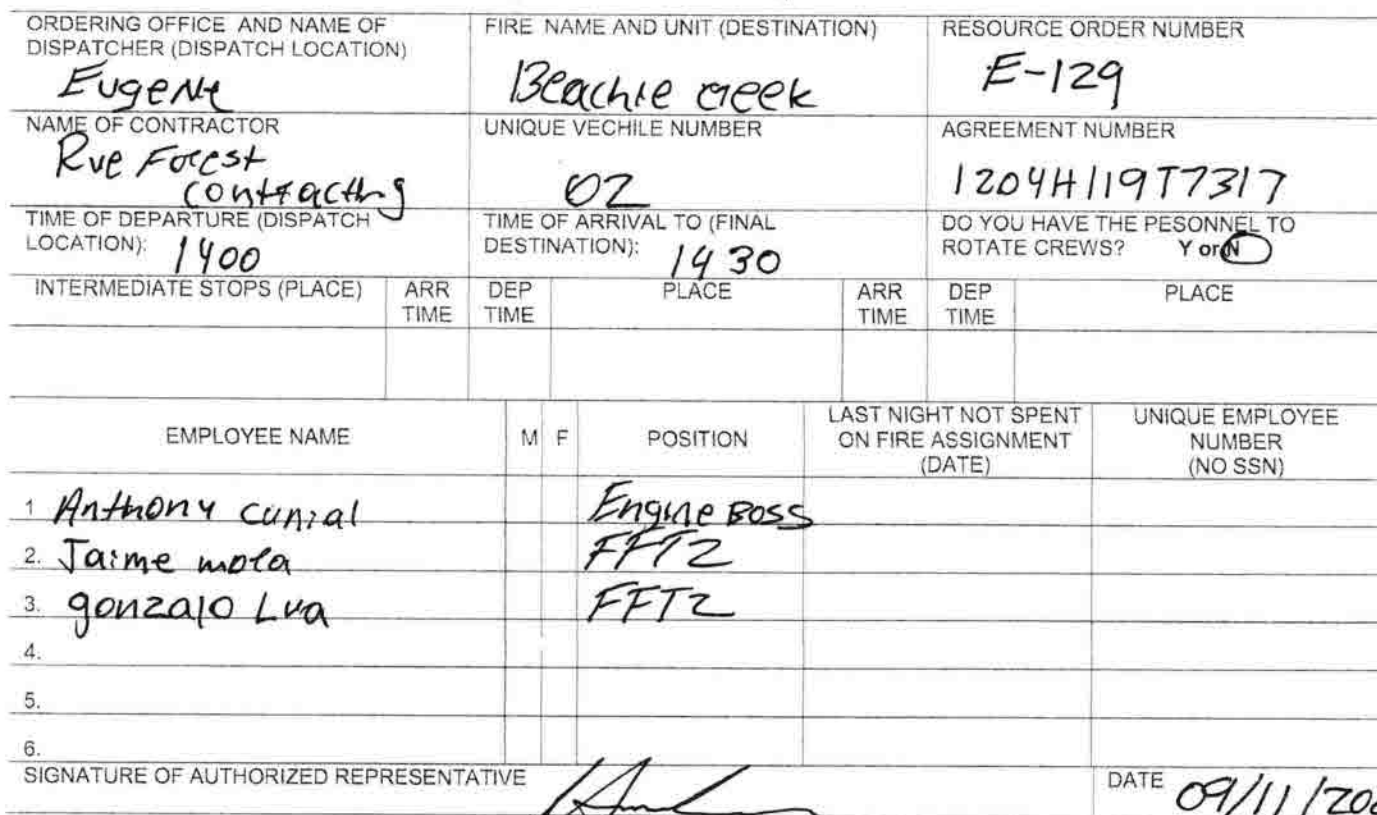 ORDERING OFFICE AND NAME OF DISPATCHER (DISPATCH LOCATION)
Eugene
FIRE NAME AND UNIT (DESTINATION)
Beachie creek
RESOURCE ORDER NUMBER
E-129
NAME OF CONTRACTOR
Rue Forest
contracting
UNIQUE VECHILE NUMBER
02
AGREEMENT NUMBER
1204H119T7317
TIME OF DEPARTURE (DISPATCH LOCATION):
1400
TIME OF ARRIVAL TO (FINAL DESTINATION):
1430
DO YOU HAVE THE PESONNEL TO ROTATE CREWS? Y or N
INTERMEDIATE STOPS (PLACE) ARR TIME DEP TIME PLACE ARR TIME DEP TIME PLACE
EMPLOYEE NAME M F POSITION LAST NIGHT NOT SPENT ON FIRE ASSIGNMENT (DATE) UNIQUE EMPLOYEE NUMBER (NO SSN)
1 Anthony cunial Engine BOSS
2. Jaime mota FFT2
3. gonzalo Lua FFT2
4.
5.
6.
SIGNATURE OF AUTHORIZED REPRESENTATIVE
DATE 09/11/20